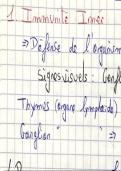 1. Immunité Innée
⇒ Défense de l'organism
Signes visuels : Gonfl
Thymus (organe lymphoïde)
Ganglion " ⇒